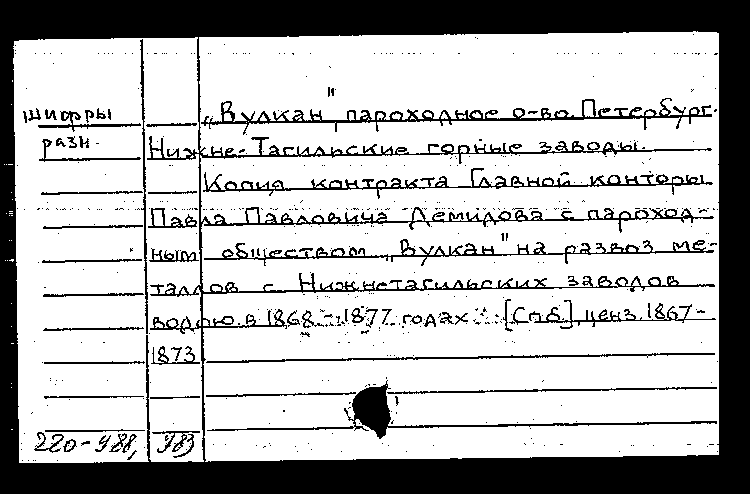 шифры „Вулкан", пароходное о-во. Петербург.
разн. Нижне-Тагильские горные заводы.
Копия контракта Главной конторы
Павла Павловича Демидова с пароход-
ным обществом „Вулкан" на развоз ме-
таллов с Нижнетагильских заводов
водою в 1868-1877 годах. [Спб], ценз. 1867-
1873
220-488, 983